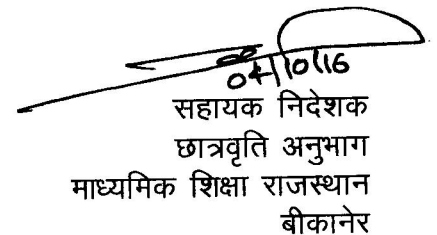 04/10/16
सहायक निदेशक
छात्रवृति अनुभाग
माध्यमिक शिक्षा राजस्थान
बीकानेर